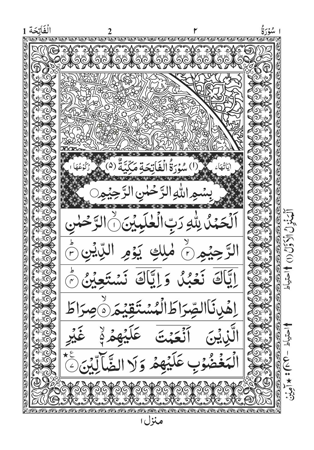 الْفَاتِحَة 1 2 ٢ سُوْرَةُ ١
اٰيَاتُهَا ٧ (١) سُوْرَةُ الْفَاتِحَةِ مَكِّيَّةٌ (٥) رُكُوْعُهَا ١
بِسْمِ اللّٰهِ الرَّحْمٰنِ الرَّحِيْمِ
اَلْحَمْدُ لِلّٰهِ رَبِّ الْعٰلَمِيْنَ ١ الرَّحْمٰنِ
الرَّحِيْمِ ٢ مٰلِكِ يَوْمِ الدِّيْنِ ٣
اِيَّاكَ نَعْبُدُ وَ اِيَّاكَ نَسْتَعِيْنُ ٤
اِهْدِنَا الصِّرَاطَ الْمُسْتَقِيْمَ ٥ صِرَاطَ
الَّذِيْنَ اَنْعَمْتَ عَلَيْهِمْ ٦ غَيْرِ
الْمَغْضُوْبِ عَلَيْهِمْ وَلَا الضَّآلِّيْنَ ٧
منزل ١
اَلْمَنْزِلُ الْاَوَّلُ (١)